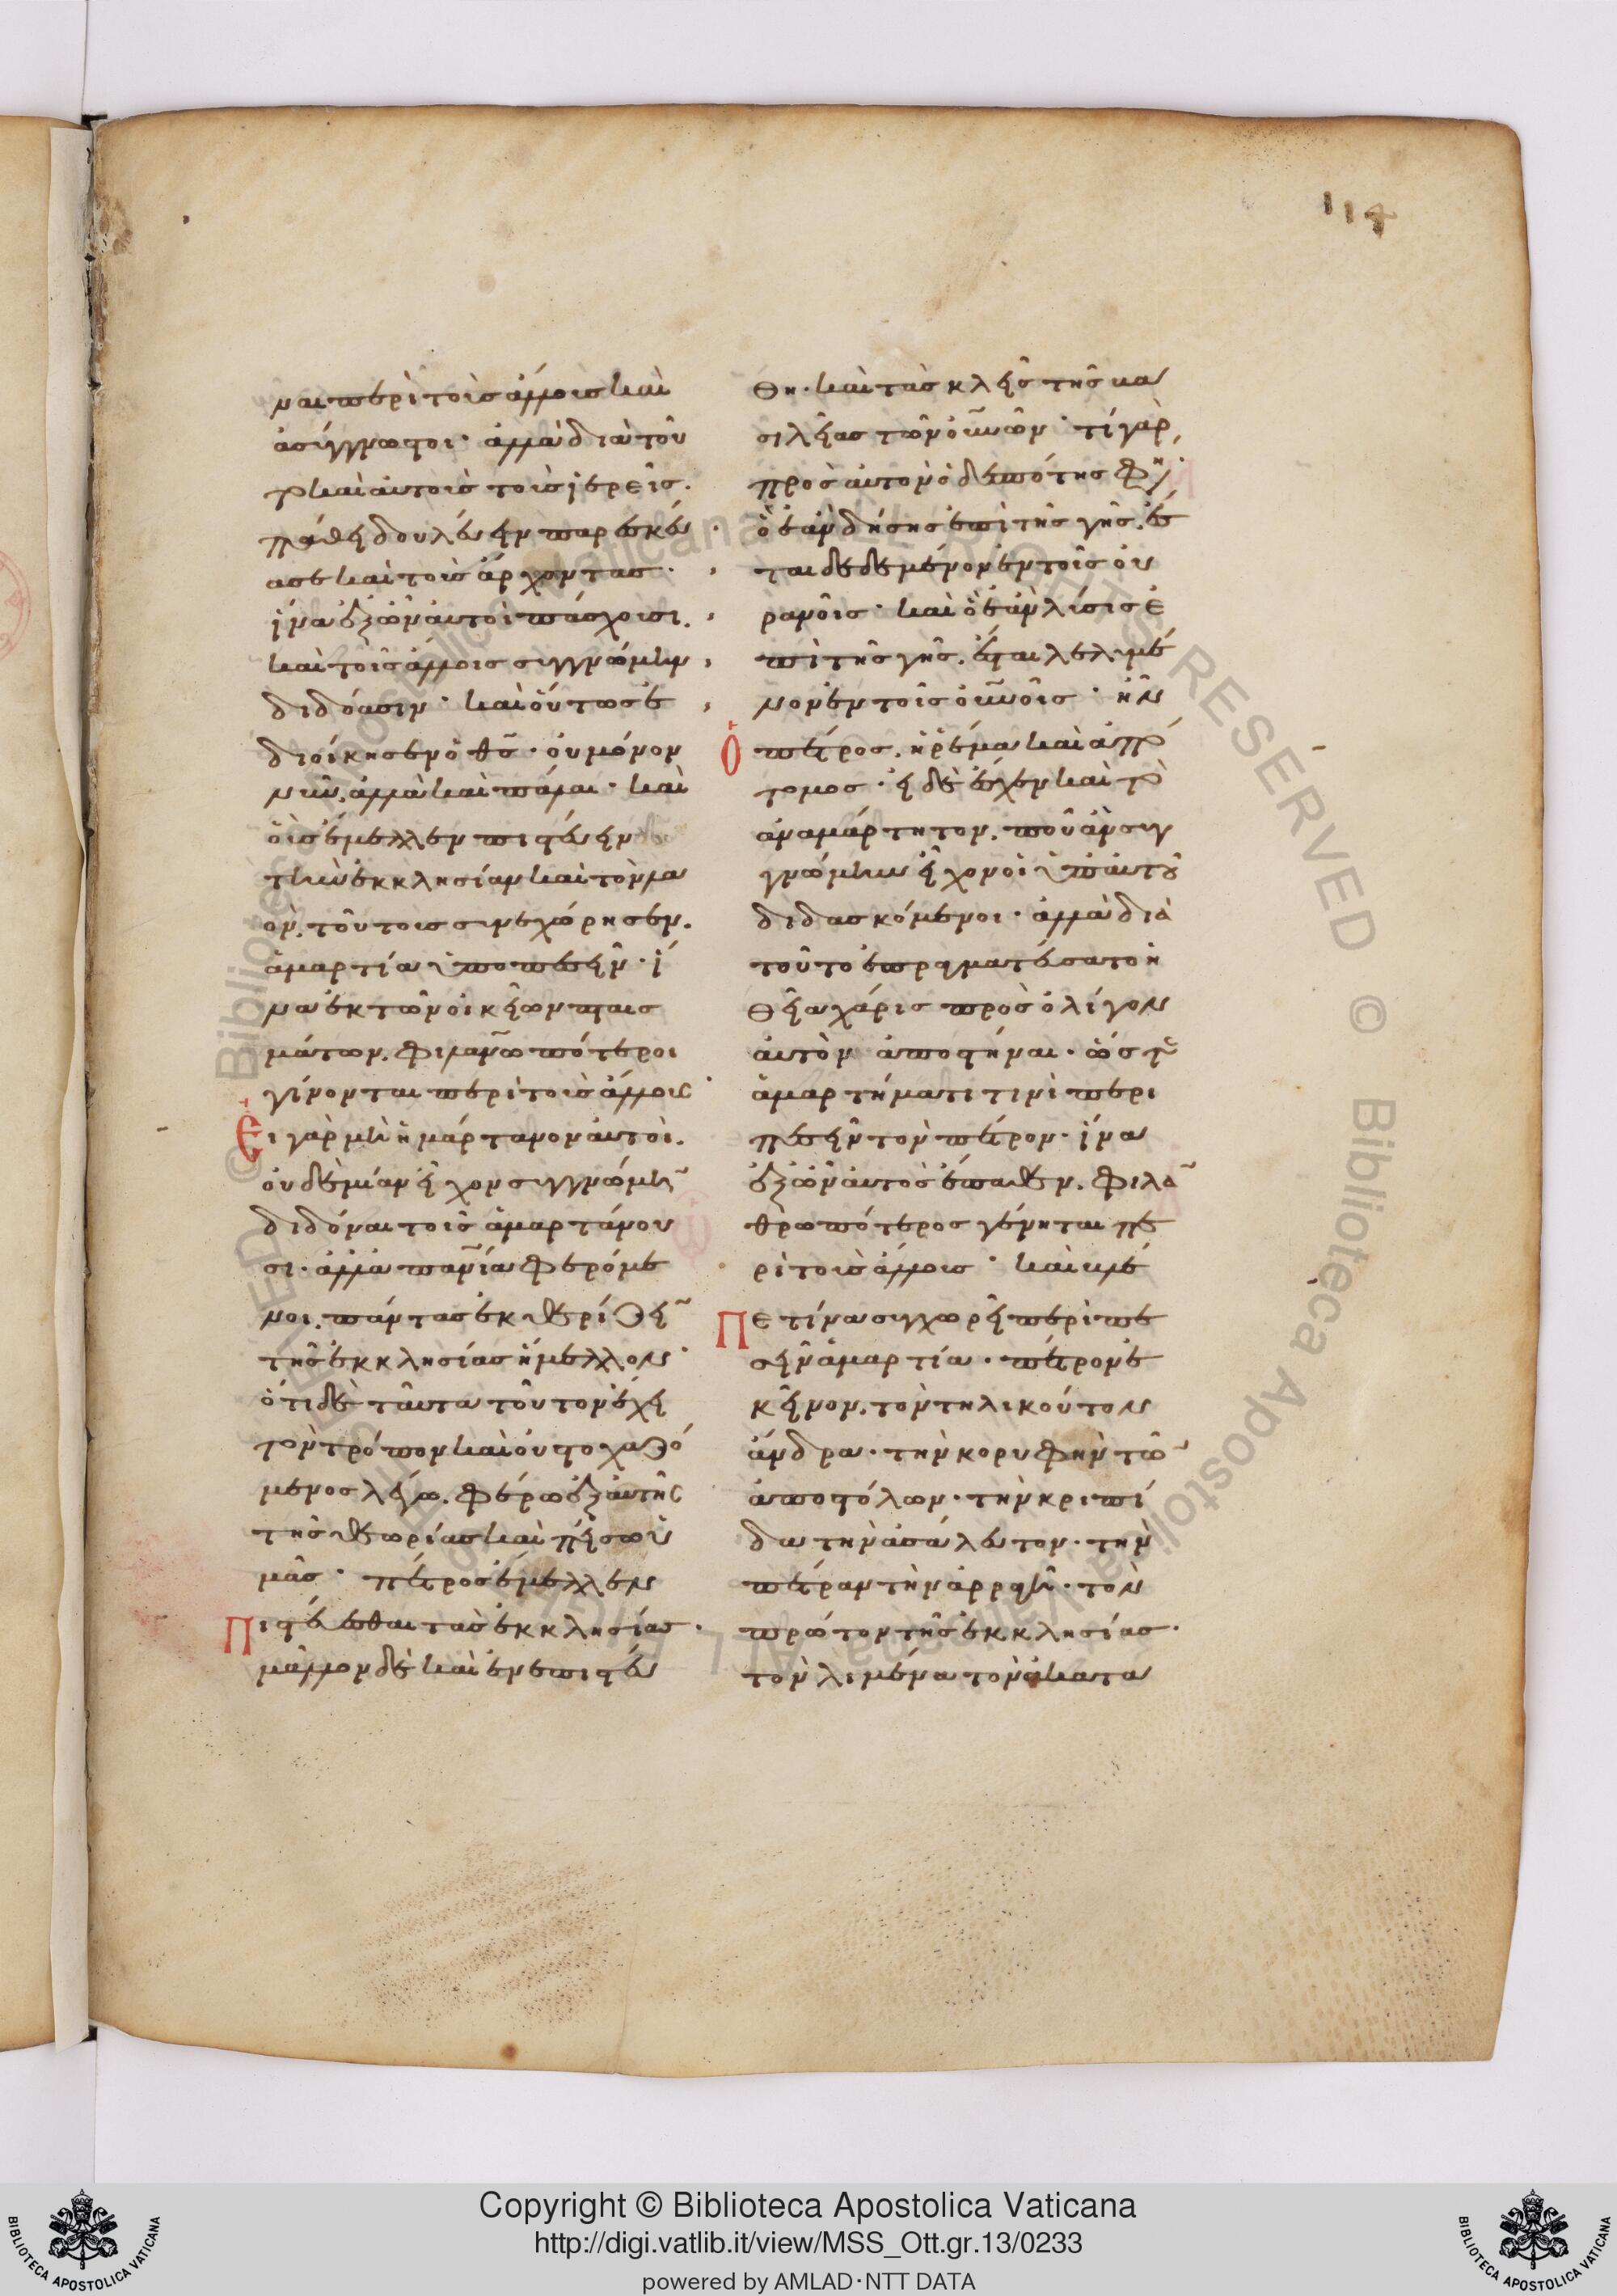 114
ναι περὶ τοὺς ἄλλους καὶ
ἀσύγγνωστοι· ἀλλὰ διὰ τοῦ
το καὶ αὐτοὺς τοὺς ἱερεῖς.
πάθει δουλεύειν παρεσκεύ
ασε καὶ τοὺς ἄρχοντας·
ἵνα ἐξ ὧν αὐτοὶ πάσχουσι.
καὶ τοῖς ἄλλοις συγγνώμην
διδόασιν· καὶ οὕτως ἐ
διοίκησεν ὁ θς· οὐ μόνον
νῦν. ἀλλὰ καὶ πάλαι· καὶ
οὓς ἔμελλεν πιστεύειν
τὴν ἐκκλησίαν καὶ τὸν λα
όν. τούτους συνεχώρησεν.
ἁμαρτία ὑποπεσεῖν· ἵ
να ἐκ τῶν οἰκείων πταισ
μάτων. φιλανωπότεροι
γίνονται περὶ τοὺς ἄλλους·
Εἰ γὰρ μὴ ἡμάρτανον αὐτοὶ.
οὐδεμίαν εἶχον συγγνώμη
διδόναι τοῖς ἁμαρτάνου
σι· ἀλλὰ πανία φερόμε
νοι. πάντας ἐκθερίζει
τῆς ἐκκλησίας ἤμελλον·
ὅτι δὲ ταῦτα τοῦτον ἔχει
τὸν τρόπον καὶ οὐ στοχαζό
μενος λέγω. φέρω ἐξ αὐτῆς
τῆς θεωρίας καὶ πείσω ὑ
μᾶς· πέτρος ἔμελλεν
Πιστεύεσθαι τὰς ἐκκλησίας·
μᾶλλον δὲ καὶ ἐνεπιστεύ
θη· καὶ τὰς κλεῖς τῆς βα
σιλείας τῶν οὐνῶν· τί γάρ,
πρὸς αὐτὸν ὁ δεσπότης φη·
ὃ ἐὰν δήσης ἐπὶ τῆς γῆς. ἔσ
ται δεδεμένον ἐν τοῖς οὐ
ρανοῖς· καὶ ὃ ἐὰν λύσις ἐ
πὶ τῆς γῆς. ἔσται λελυμέ
νον ἐν τοῖς οὐνοῖς· ἦν
Ὁ πέτρος. ἠρέμα καὶ ἀπό
τομος· εἰ δὲ ἔσχεν καὶ τὸ
ἀναμάρτητον. ποῦ ἂν συγ
γνώμην εἶχον οἱ ὑπ' αὐτοῦ
διδασκόμενοι· ἀλλὰ διὰ
τοῦτο ἐπραγματεύσατο ἡ
θεία χάρις πρὸς ὀλίγον
αὐτὸν ἀποστῆναι· ὥστε
ἁμαρτήματι τινὶ περι
πεσεῖν τὸν πέτρον· ἵνα
ἐξ ὧν αὐτὸς ἔπαθεν. φιλα
θρωπότερος γένηται πε
ρὶ τοὺς ἄλλους· καὶ βλέ
Πε τίνα συγχωρεῖ περιπε
σεῖν ἁμαρτία· πέτρον ἐ
κεῖνον. τὸν τηλικοῦτον
ἄνδρα· τὴν κορυφὴν τῶ
ἀποστόλων· τὴν κριπί
δα τὴν ἀσάλευτον· τὴν
πέτραν τὴν ἀρραγῆ· τὸν
πρῶτον τῆς ἐκκλησίας·
τὸν λιμένα τὸν ἀκατα
© Biblioteca Apostolica Vaticana ALL RIGHTS RESERVED
Copyright © Biblioteca Apostolica Vaticana
http://digi.vatlib.it/view/MSS_Ott.gr.13/0233
powered by AMLAD·NTT DATA
BIBLIOTECA APOSTOLICA VATICANA
BIBLIOTECA APOSTOLICA VATICANA